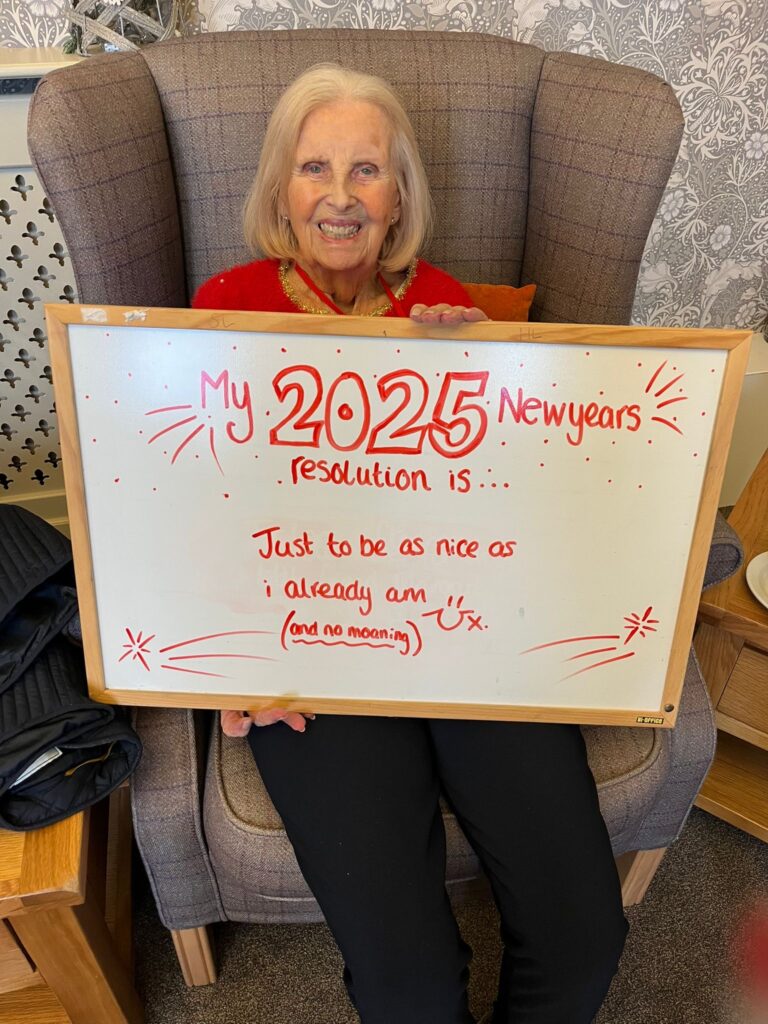 My 2025 Newyears
resolution is...
Just to be as nice as
i already am
(and no moaning) x.
BI-OFFICE